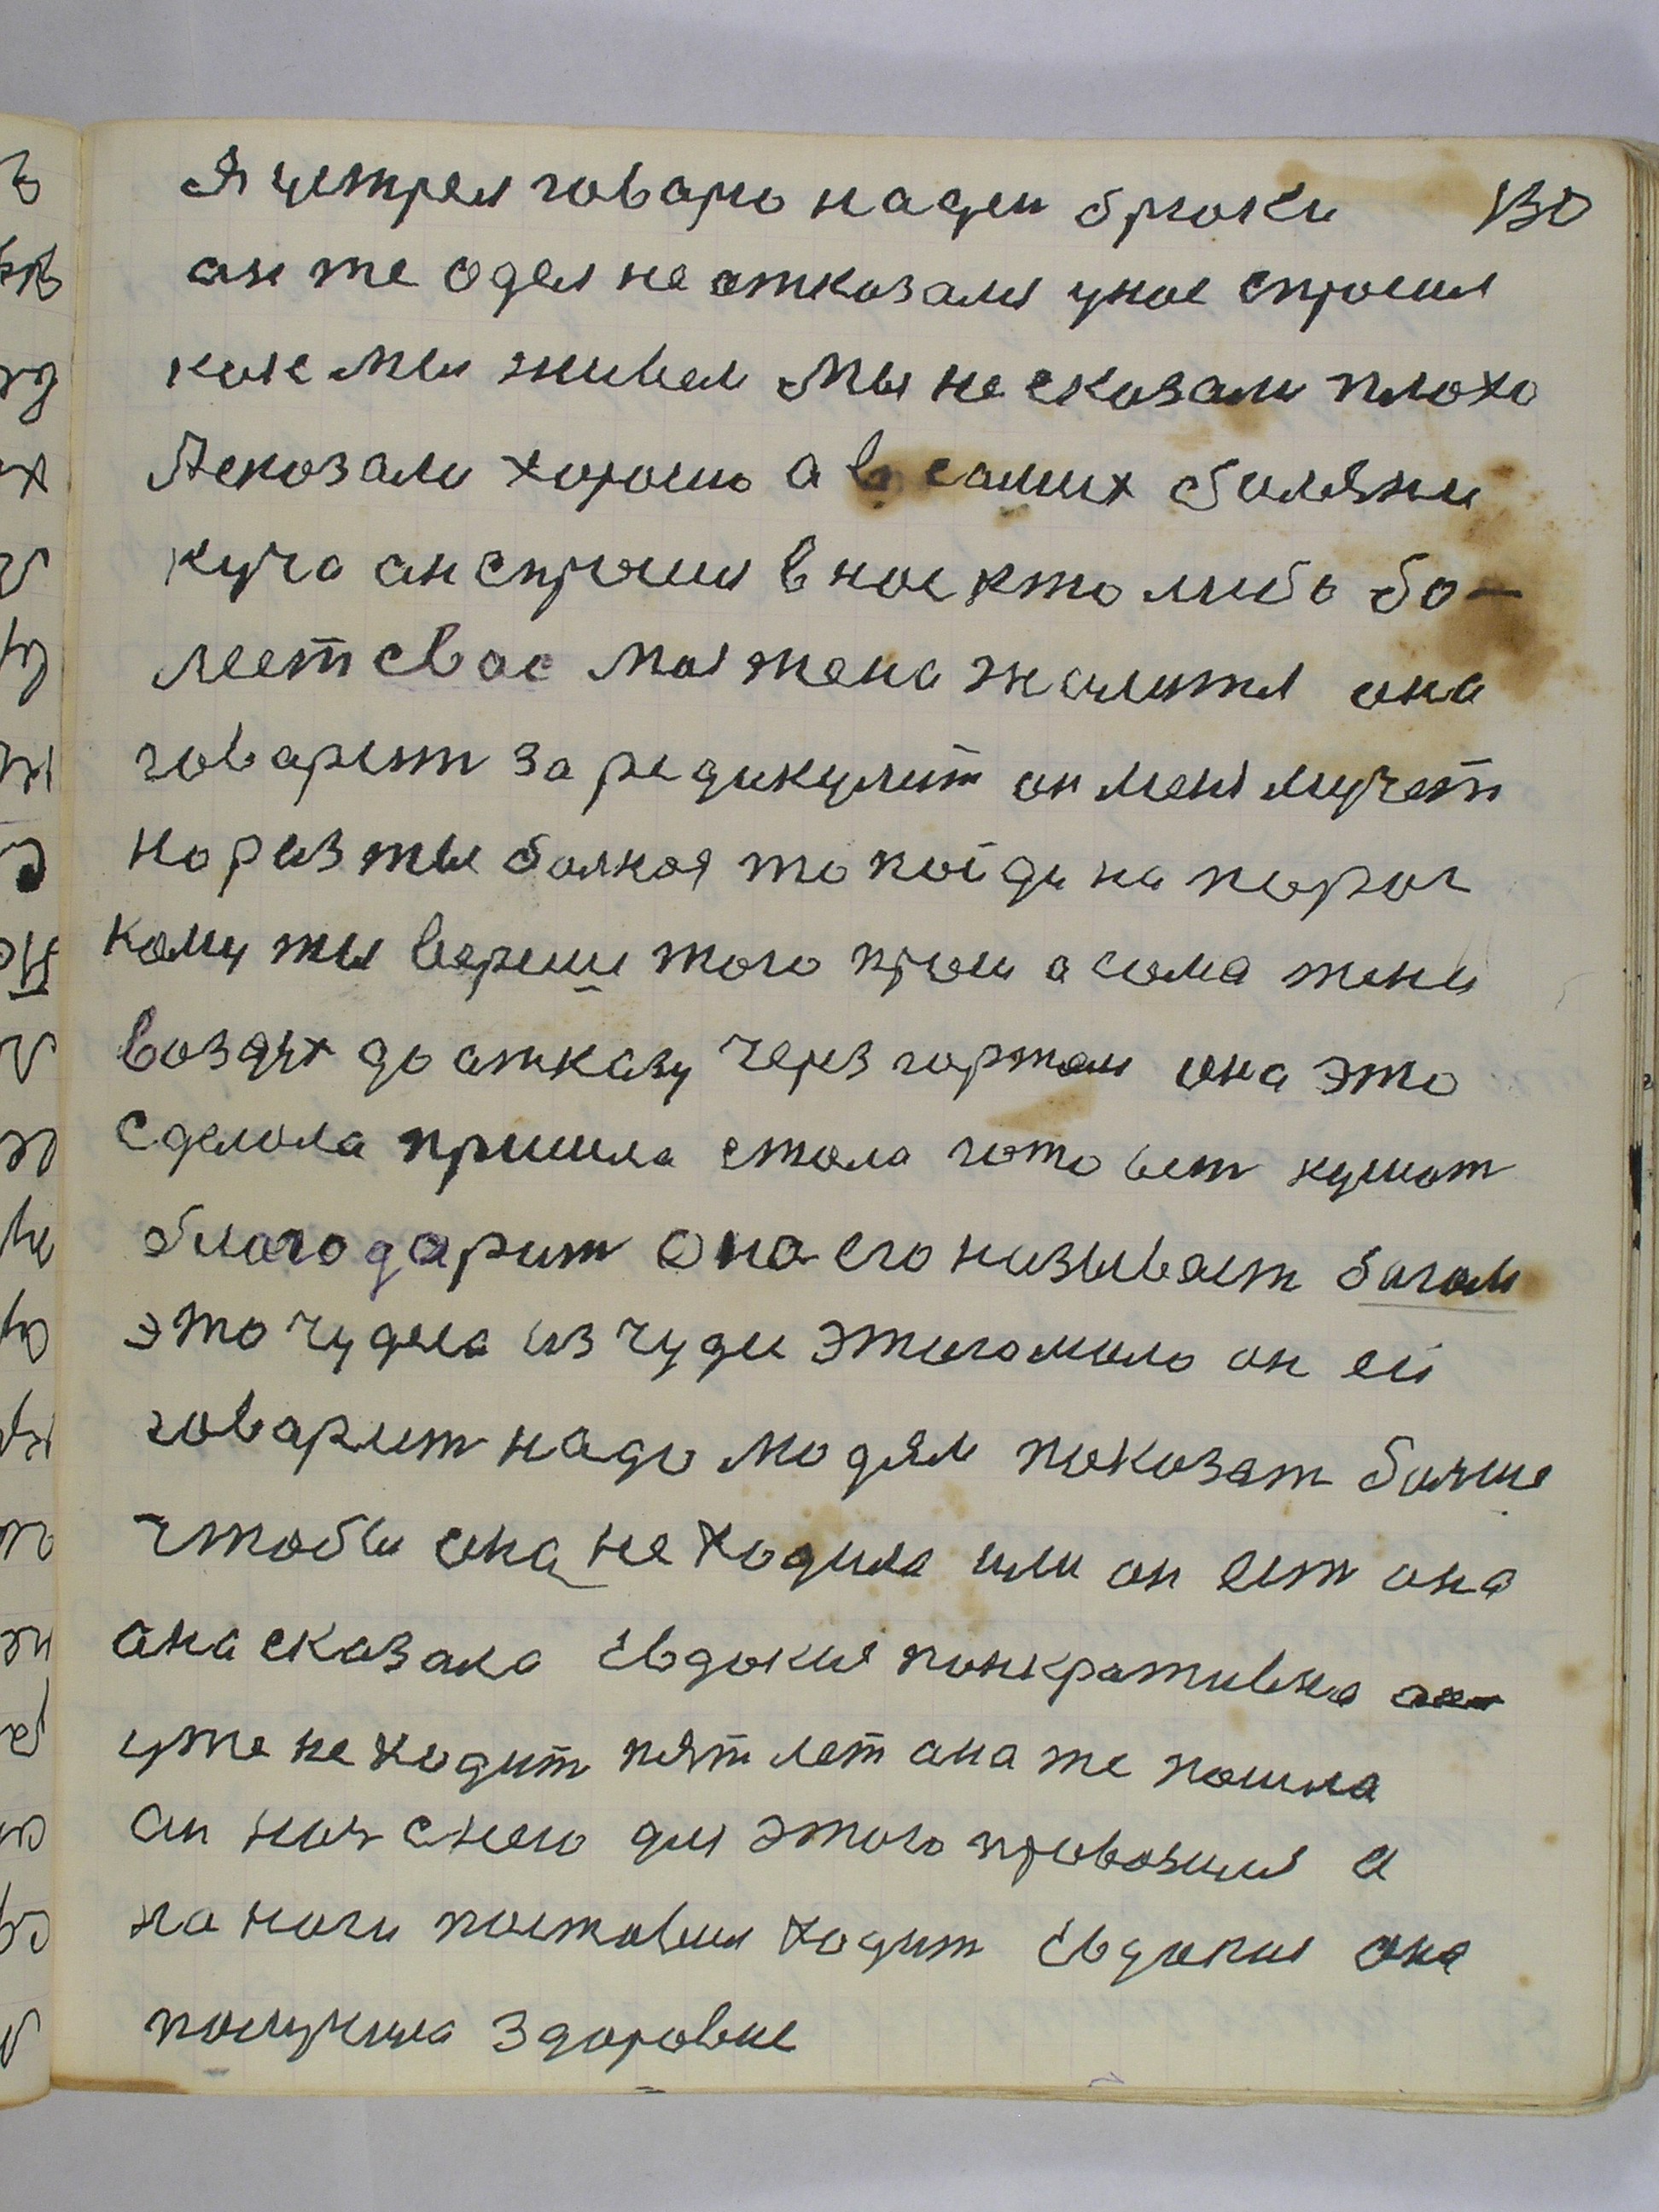 Я устрел говарю надеи брюки 130
ан те одел не атказаля унас спросил
как мы живем мы не сказали плохо
А сказали хорошо а в самих болячки
куча ан спросил в нас кто либо бо-
леет с вас моя жена жалится она
говарит за редикулит он меня мучет
но раз ты болная то пойди на порог
кому ты вериш того проси а сама тени
воздух до атказу через гортан она это
сделала пришла стала готовит кушат
благодарит она его називает богом
это чудеса из чуди этого мало он ей
говарит надо людям показат болше
чтобы она не ходила или он ест она
она сказала Евдокия панкративна
уже не ходит пят лет она же пошла
ан ноч с нею для этого провозился и
на ноги поставил ходит Евдокия она
получила здоровие